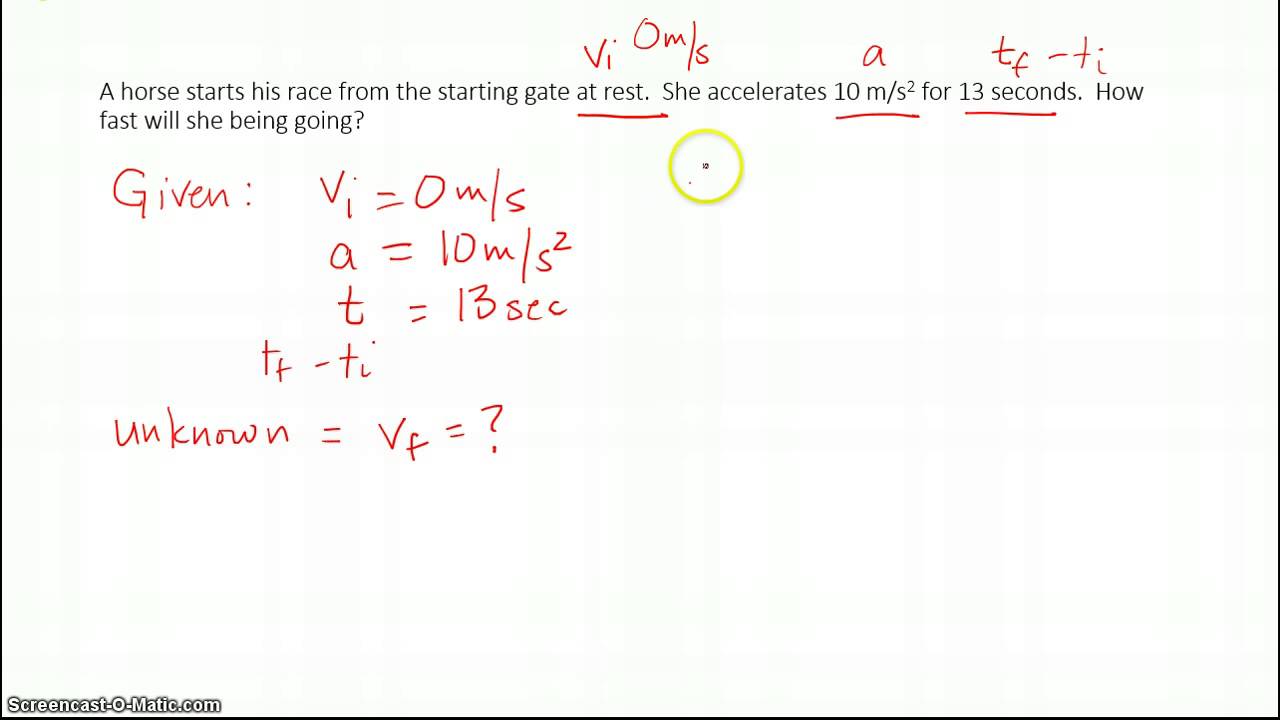 vi 0m/s a tf - ti
A horse starts his race from the starting gate at rest. She accelerates 10 m/s² for 13 seconds. How
fast will she being going?
Given: vi = 0m/s
a = 10m/s²
t = 13sec
tf - ti
unknown = vf = ?
Screencast-O-Matic.com